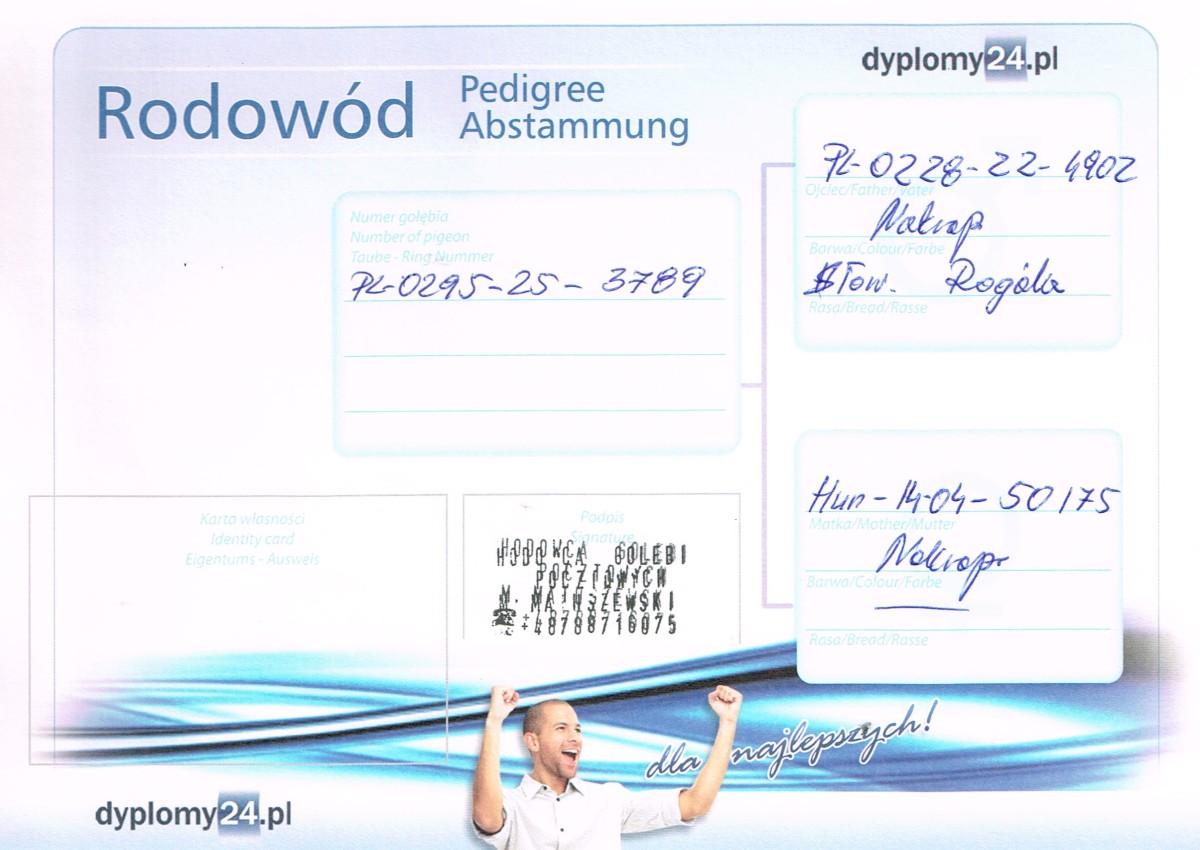 dyplomy24.pl
Rodowód
Pedigree
Abstammung
Numer gołębia
Number of pigeon
Taube - Ring Nummer
PL-0295-25-3789
PL-0228-22-4902
Ojciec/Father/Vater
Nakrap
Barwa/Colour/Farbe
Stow. Rogóla
Rasa/Bread/Rasse
Hun-14-04-50175
Matka/Mother/Mutter
Nakrap
Barwa/Colour/Farbe
Rasa/Bread/Rasse
Karta własności
Identity card
Eigentums - Ausweis
Podpis
Signature
HODOWCA GOŁĘBI
POCZTOWYCH
M. MATUSZEWSKI
+48788716075
dla najlepszych!
dyplomy24.pl